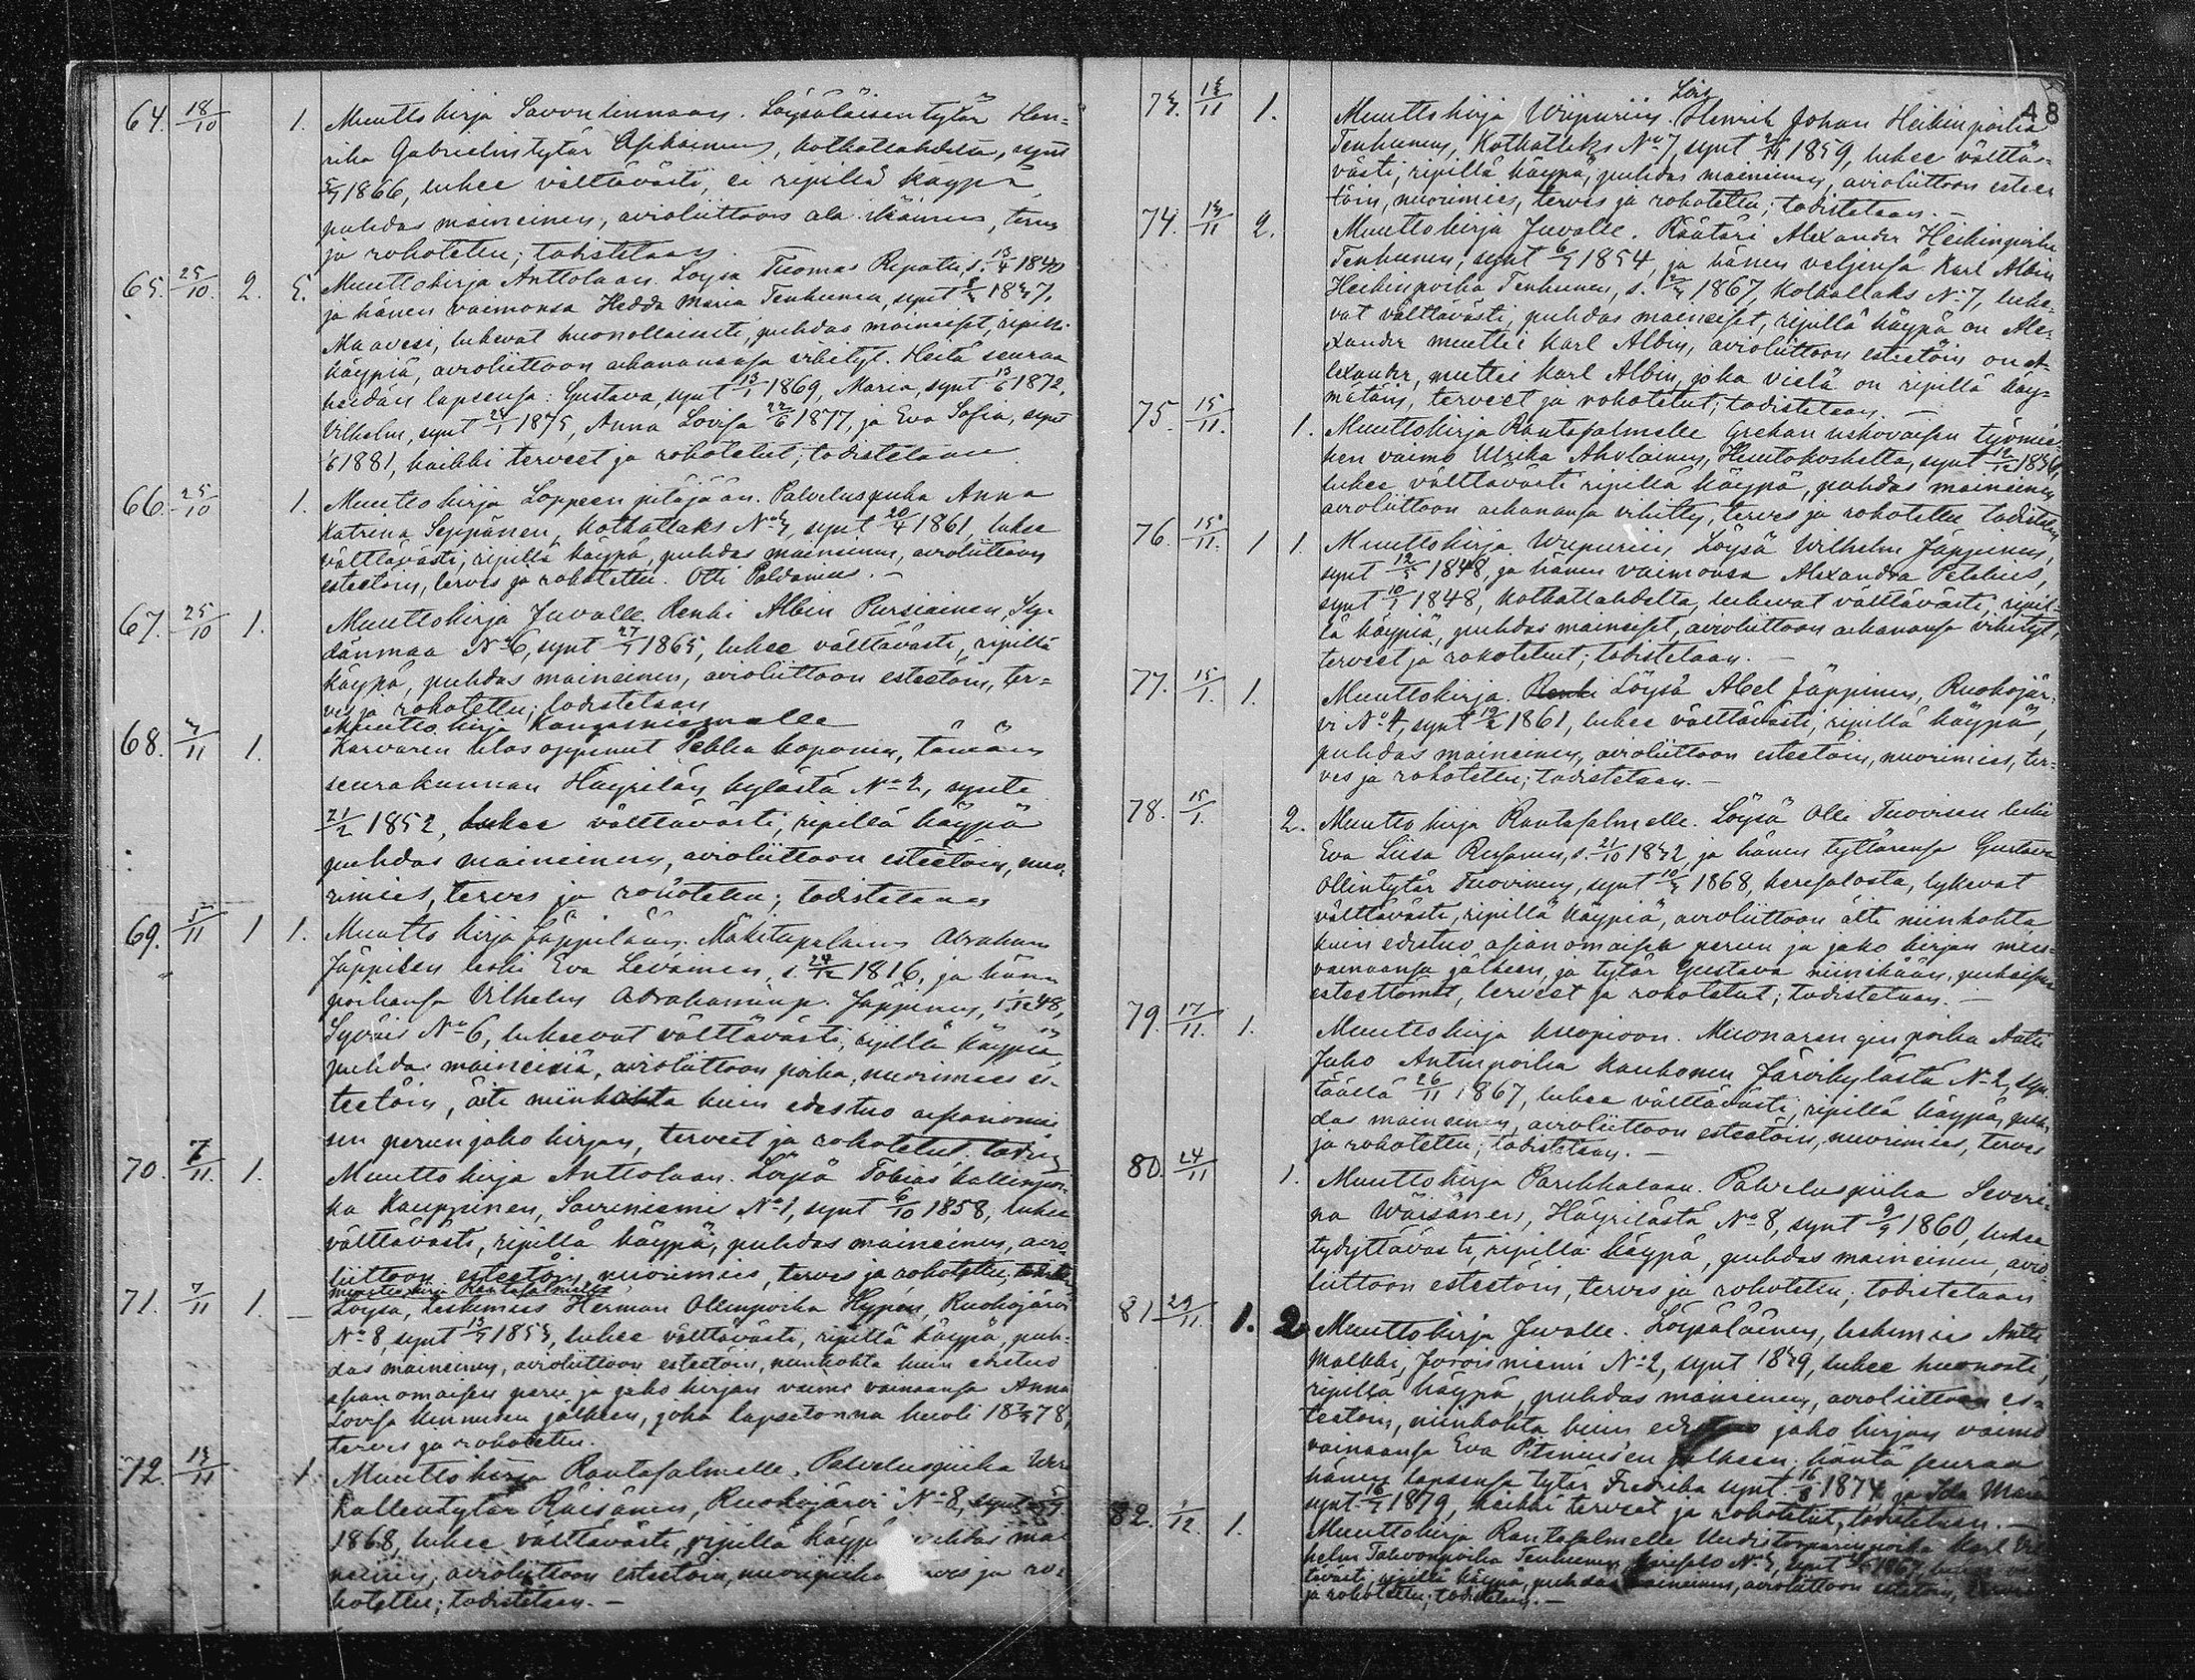 64. 18/10 1. Muutto kirja Savonlinnaan. Löysäläisen tytär Hen=
rika Gabrielintytär Asikainen, kotkatlahdelta, synt
1866, lukee välttävästi, ei ripillä käypä
puhdas maineinen, avioliittoon ala ikäinen, terves
ja rokotettu; todistetaan
65. 25/10. 2. 5. Muuttokirja Anttolaan. Löysä Tuomas Ripattu, s. 13/4 1840
ja hänen vaimonsa Hedda Maria Tenhunen, synt 1847,
Maavesi, lukevat huonollaisesti, puhdas maineiset, ripillä
käypiä, avioliittoon aikananansa vihityt. Heitä seuraa
heidän lapsensa: Gustava, synt 13/1 1869, Maria, synt 13/6 1872,
Vilhelm, synt 24/1 1875, Anna Lovisa 22/6 1877, ja Eva Sofia, synt
1881, kaikki terveet ja rokotetut; todistetaan
66. 25/10 1. Muutto kirja Loppeen pitäjään. Palveluspiika Anna
Katrina Seppänen, Kotkatlaks synt 20/4 1861, lukee
välttävästi, ripillä käypä, puhdas maineinen, avioliittoon
esteetöin, terves ja rokotettu. Otti Paldanius. —
67. 25/10 1. Muuttokirja Juvalle. Renki Albin Pursiainen, Sy=
dänmaa No 6, synt 1865, lukee välttävästi, ripillä
käypä, puhdas maineinen, avioliittoon esteetöin, ter=
ves ja rokotettu; todistetaan
Muutto kirja Kangasniemelle
68. 11 1. Karvarin tilas oppinut Pekka Koponen, tämän
seurakunnan Häyrilän kylästä No 2, synt
21/2 1852, lukee välttävästi, ripillä käypä
puhdas maineinen, avioliittoon esteetöin, nuo=
rimies, terves ja rokotettu; todistetaan
69. 5/11 1 1. Muutto kirja Jäppilään. Mäkitupalainen Abraham
Jäppisen leski Eva Leväinen, s. 24/12 1816, ja hänen
poikansa Vilhelm Abrahaminp. Jäppinen, 48,
Syväis No 6, lukeevat välttävästi, ripillä käypiä
puhdas maineisia, avioliittoon poika, nuorimies es=
teetöin, äiti niinkohta kuin edestuo asianomai
sen perunjako kirjan, terveet ja rokotetut. todist
70. 7/11. 1. Muutto kirja Anttolaan. Löysä Tobias Kallenpoi=
ka Kauppinen, Saviniemi No 1, synt 6/10 1858, lukee
välttävästi, ripillä käypä, puhdas maineinen, avio=
liittoon esteetöin, nuorimies, terves ja rokotettu, todistetaan
Muutto kirja Rantasalmelle
71. 7/11 1. Löysä, leskimies Herman Ollinpoika Hypén, Ruokojärvi
No 8, synt lukee välttävästi, ripillä käypä, puh=
das maineinen, avioliittoon esteetöin, niinkohta kuin edestuo
asianomaisen peru ja jako kirjan vaimo vainaansa Anna
Lovisa Kinnusen jälkeen, joka lapsetonna kuoli 1878,
terves ja rokotettu.
72. 11 1 Muutto kirja Rantasalmelle. Palveluspiika
Kallentytär Räisänen, Ruokojärvi No 8, synt
1868, lukee välttävästi, ripillä käypä puhdas mai
neinen, avioliittoon esteetöin, nuoripiika terves ja ro=
kotettu; todistetaan. —
48
73. 11 1. Muuttokirja Wiipuriin. Löis Henrik Johan Heikinpoika
Tenhunen, Kotkatlaks No 7, synt 1859, lukee välttä=
västi, ripillä käypä, puhdas maineinen, avioliittoon estee
töin, nuorimies, terves ja rokotettu; todistetaan. —
74. 11 2. Muuttokirja Juvalle. Räätäri Alexander Heikinpoika
Tenhunen, synt 1854, ja hänen veljensä Karl Albin
Heikinpoika Tenhunen, s. 1867, Kotkatlaks No 7, luke=
vat välttävästi, puhdas maineiset, ripillä käypä on Ale=
xander muttei Karl Albin, avioliittoon esteetöin on A=
lexander, muttei Karl Albin, joka vielä on ripillä käy=
mätöin, terveet ja rokotetut; todistetaan. —
75. 15/11. 1. Muuttokirja Rantasalmelle Grekan uskovaisen työmie=
hen vaimo Ulrika Aholainen, Huutokoskelta, synt
lukee välttävästi ripillä käypä, puhdas maineinen
avioliittoon aikanansa vihitty, terves ja rokotettu todistetaan
76. 15/11. 1 1. Muuttokirja Wiipuriin, Löysä Wilhelm Jäppinen,
synt 1848, ja hänen vaimonsa Alexandra Petelius,
synt 1848, Kotkatlahdelta, lukevat välttävästi, ripil=
lä käypiä, puhdas maineiset, avioliittoon aikanansa vihityt,
terveet ja rokotetut; todistetaan. —
77. 15/1. 1. Muuttokirja. Renki Löysä Abel Jäppinen, Ruokojär=
vi No 4, synt 1861, lukee välttävästi, ripillä käypä,
puhdas maineinen, avioliittoon esteetöin, nuorimies, ter=
ves ja rokotettu; todistetaan. —
78. 15/1. 2. Muutto kirja Rantasalmelle. Löysä Olli Tuovisen leski
Eva Liisa s. 21/10 1842, ja hänen tyttärensä Gustava
Ollintytär Tuovinen, synt 1868, kerisalosta, lukevat
välttävästi, ripillä käypiä, avioliittoon äiti niinkohta
kuin edestuo asianomaisen perun ja jako kirjan mies=
vainaansa jälkeen, ja tytär Gustava niinikään,
esteettömät, terveet ja rokotetut; todistetaan. —
79. 17/11. 1. Muuttokirja Kuopioon. Muonarengin poika Antti
Juho Antinpoika Kauhonen Järvikylästä No 2, syn.
täällä 26/11 1867, lukee välttävästi, ripillä käypä, puh=
das maineinen, avioliittoon esteetöin, nuorimies, terves
ja rokotettu; todistetaan. —
80. 24/11 1. Muuttokirja Parikkalaan. Palveluspiika Severi=
na Wäisänen, Häyrilästä No 8, synt 9/9 1860, lukee
tydyttävästi, ripillä käypä, puhdas maineinen, avio=
liittoon esteetöin, terves ja rokotettu; todistetaan
81 29/11. 1. 2 Muuttokirja Juvalle. Löysäläinen, leskimies Antti
Malkki, Joroisniemi No 2, synt lukee huonosti,
ripillä käypä, puhdas maineinen, avioliittoon es=
teetöin, niinkohta kuin edestuo jako kirjan vaimo
vainaansa Eva jälkeen. häntä seuraa
hänen lapsensa tytär Fredrika synt. 16/8 1874, ja Ida Maria
synt. 1879, kaikki terveet ja rokotetut, todistetaan. —
82. 1/12. 1. Muuttokirja Rantasalmelle Uudistorpparin poika Karl Vil
helm Tahvonpoika Tenhunen, Kerisalo synt 1867,
tävästi, ripillä käypä, puhdas maineinen, avioliittoon esteetöin, terves
ja rokotettu; todistetaan. —